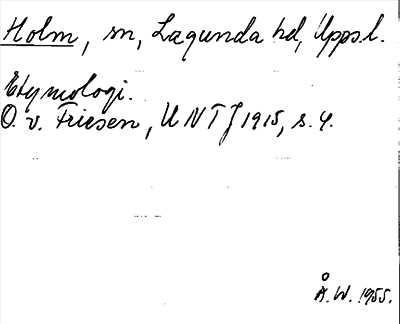 Holm, sn, Lagunda hd, Upps.l.
Etymologi.
O. v. Friesen, UNTJ 1915, s. 4.
Å.W. 1955.